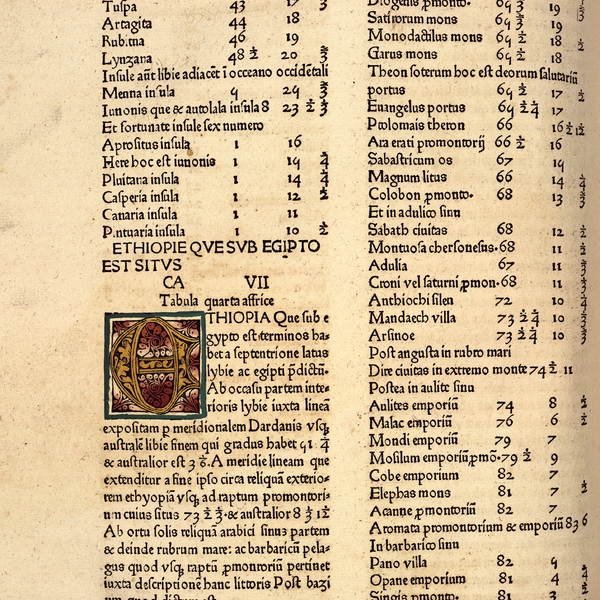 Tuspa 43 17 ⅓
Artagita 44 18
Rubuna 46 19
Lynxana 48 ½ 20 ⅓
Insule aūt libie adiacēt ī occeano occidētali
Menna insula 9 29 ⅓
Iunonis que & autolala insula 8 23 ½ ⅓
Et fortunate insule sex numero
Aprositus insula 1 16
Here hoc est iunonis 1 19 ¼
Pluitana insula 1 14 ¼
Casperia insula 1 12 ½
Canaria insula 1 11
P.ntuaria insula 1 10 ½
ETHIOPIE QVE SVB EGIPTO
EST SITVS
CA VII
Tabula quarta affrice
ETHIOPIA Que sub e
gypto est terminos ha-
bet a septentrione latus
lybie ac egipti p̄dictū.
Ab occasu partem inte-
rioris lybie iuxta lineā
expositam p meridionalem Dardanis vsq,
australē libie finem qui gradus habet 41 ¼
& australior est 3 ⅙. A meridie lineam que
extenditur a fine ipso circa reliquā exterio-
rem ethyopiā vsq, ad raptum promontori-
um cuius situs 73 ½ ⅓. & australior 8 ⅓ 1/12
Ab ortu solis reliquā arabici sinus partem
& deinde rubrum mare: ac barbaricū pela-
gus quod vsq, raptū p̄montoriū pertinet
iuxta descriptionē hanc littoris Post bazi
um quod dictum est
Diogenis p̄monto. 69 ⅓ 19
Satirorum mons 69 ⅓ 19
Monodactilus mons 69 ½ 18 ½
Garus mons 69 ½ 18
Theon soterum hoc est deorum salutariū
portus 69 ½ 17 ½
Euangelus portus 69 ½ ¼ 17
Ptolomais theron 66 16 ½ 1/12
Ara erati promontorij 66 ½ 16
Sabastricum os 67 19
Magnum litus 66 14 ¼
Colobon p̄monto. 68 13 ⅓
Et in adulico sinu
Sabath ciuitas 68 12 ½
Montuosa chersonesus. 68 11 ½
Adulia 67 11 ⅓
Croni vel saturni p̄mon. 68 11 ⅓
Anthiochi silen 72 10 ¼
Mandaech villa 73 ½ ¼ 10 ⅓
Arsinoe 73 ½ ¼ 10 ⅓
Post angusta in rubro mari
Dire ciuitas in extremo monte 74 ½ 11
Postea in aulite sinu
Aulites emporiū 74 8 ½
Malac emporiū 76 6 ½
Mondi emporiū 79 7
Mosilum emporiū, p̄mō. 79 ½ 9
Cobe emporium 82 7
Elephas mons 81 7 ½
Acanne p̄montoriū 82 7
Aromata promontorium & emporiū 83 6
In barbarico sinu
Pano villa 82 9
Opane emporium 81 4 ¼
Singis p̄monto. 81 3